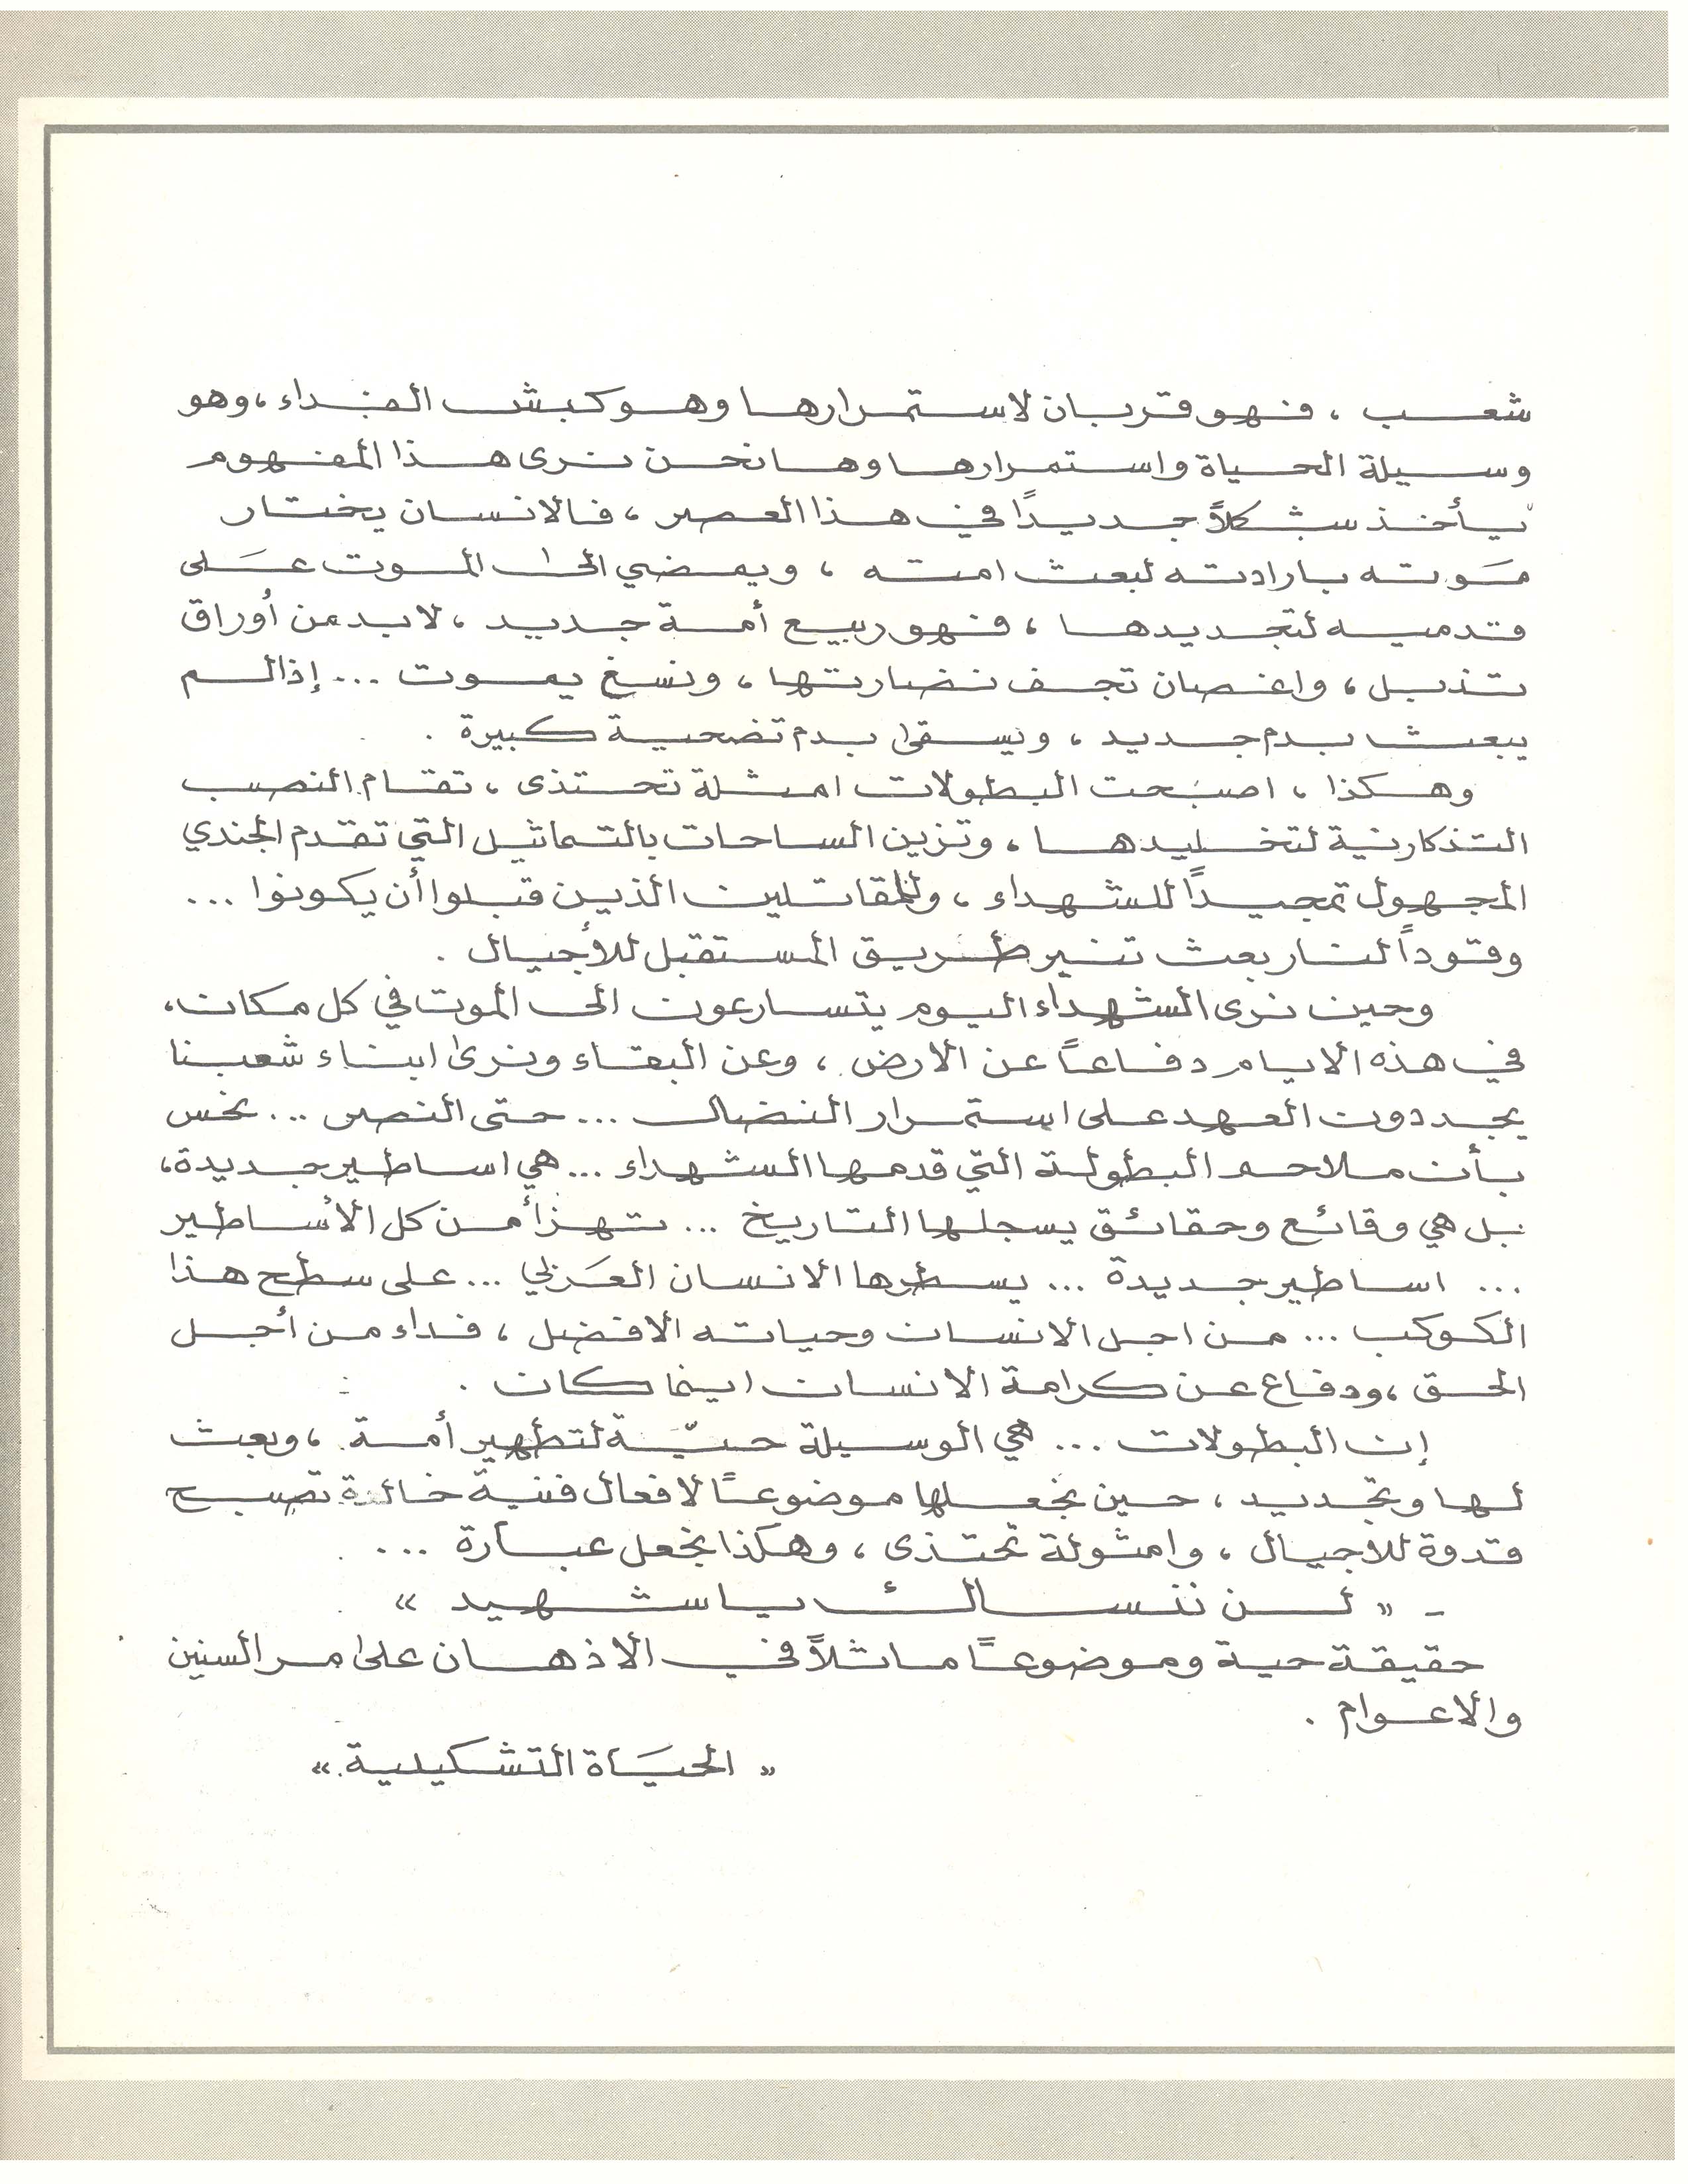 شعب ، فهو قربان لاستمرارها وهو كبش الفداء ، وهو
وسيلة الحياة واستمرارها وها نحن نرى هذا المفهوم
يأخذ شكلاً جديداً في هذا العصر ، فالانسان يختار
مَوته بارادته لبعث امته ، ويمضي الى الموت عَلى
قدميه لتجديدها ، فهو ربيع أمة جديد ، لابد من أوراق
تذبل ، واغصان تجف نضارتها ، ونسغ يموت ... إذا لم
يبعث بدم جديد ، ويسقى بدم تضحية كبيرة .
وهكذا ، اصبَحت البطولات امثلة تحتذى ، تقام النصب
التذكارية لتخليدها ، وتزين الساحات بالتماثيل التي تقدم الجندي
المجهول تمجيداً للشهداء ، وللمقاتلين الذين قبلوا أن يكونوا ...
وقوداً لنار بعث تنير طريق المستقبل للأجيال .
وحين نرى الشهداء اليوم يتسارعون الى الموت في كل مكان ،
في هذه الايام دفاعاً عن الارض ، وعن البقاء ونرى ابناء شعبنا
يجددون العهد على استمرار النضال ... حتى النصر ... نحس
بأن ملاحم البطولة التي قدمها الشهداء ... هي اساطير جديدة ،
بل هي وقائع وحقائق يسجلها التاريخ ... تهزأ من كل الأساطير
... اساطير جديدة ... يسطرها الانسان العَربي ... على سطح هذا
الكوكب ... من اجل الانسان وحياته الافضل ، فداء من أجل
الحق ، ودفاع عن كرامة الانسان اينما كان .
إن البطولات ... هي الوسيلة حيّة لتطهير أمة ، وبعث
لها وتجديد ، حين نجعلها موضوعاً لافعال فنية خالدة تصبح
قدوة للاجيال ، وامثولة تحتذى ، وهكذا نجعل عبارة ...
- « لن ننساك يا شهيد »
حقيقة حية وموضوعاً ماثلاً في الاذهان على مر السنين
والاعوام .
« الحيَاة التشكيلية »